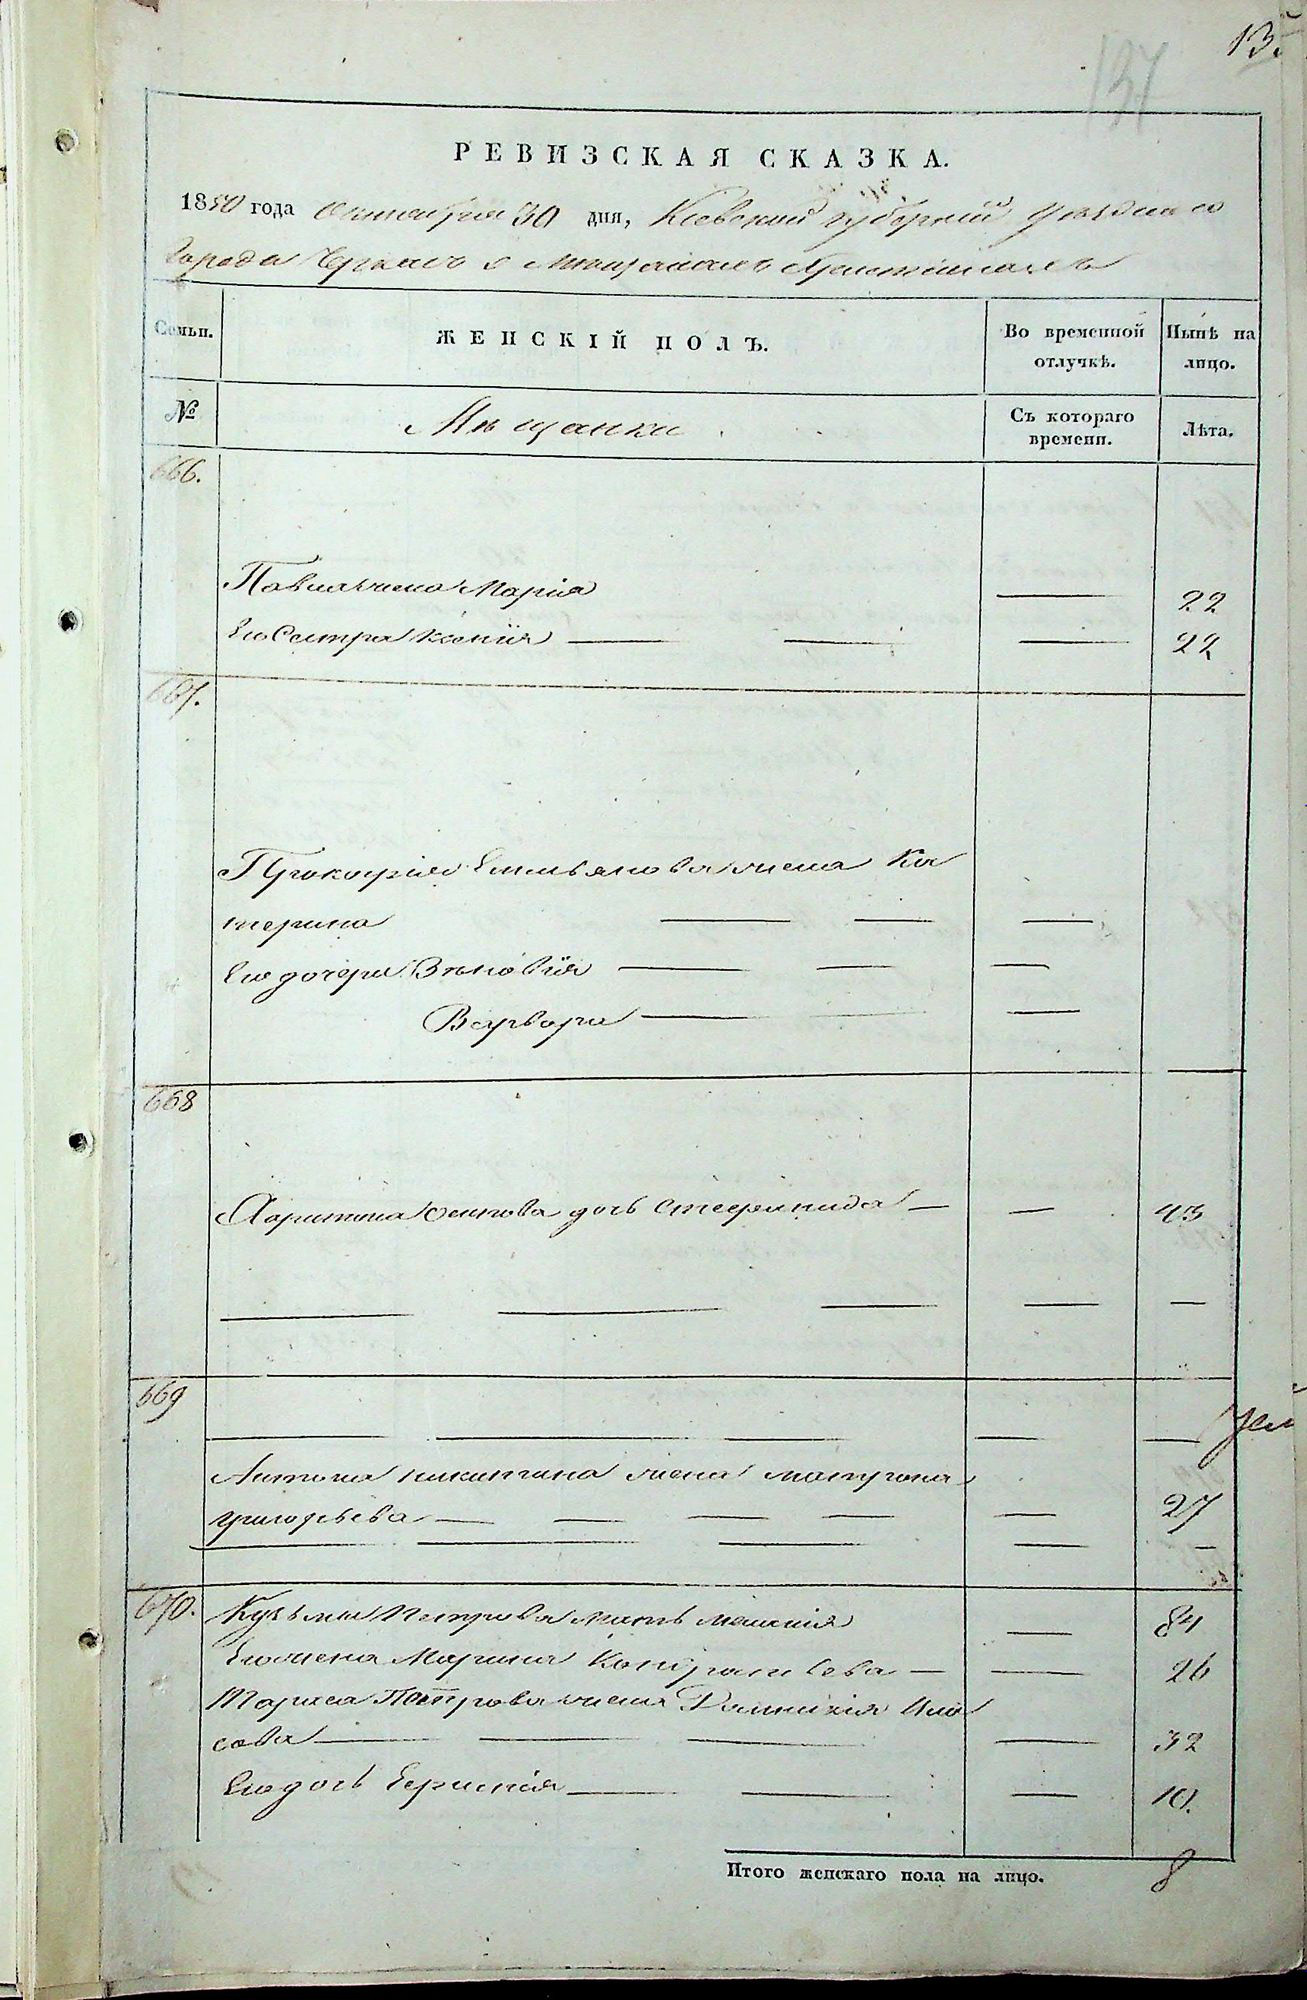 137
РЕВИЗСКАЯ СКАЗКА.
1850 года Октября 30 дня, Кіевской губерніи уѣзднаго
города Черкасъ о Мѣщанахъ Христіанахъ
Семьи. ЖЕНСКІЙ ПОЛЪ. Во временной отлучкѣ. Нынѣ на лицо.
№ Мѣщанки Съ котораго времени. Лѣта.
666.
Павла жена Марія 22
Его Сестра Ксенія 22
667.
Прокофія Емельянова жена Ка
терина
Его дочери Зѣновія
Варвара
668
Харитона Осипова дочь Стефанида 43
669
Антона Никитина жена Матрона
Григорьева 27
670. Кузьмы Петрова мать Меланія 84
Его жена Марина Кондратьева 26
Тараса Петрова жена Домникія Вла
сова 32
Его дочь Ефимія 10.
Итого женскаго пола на лицо. 8